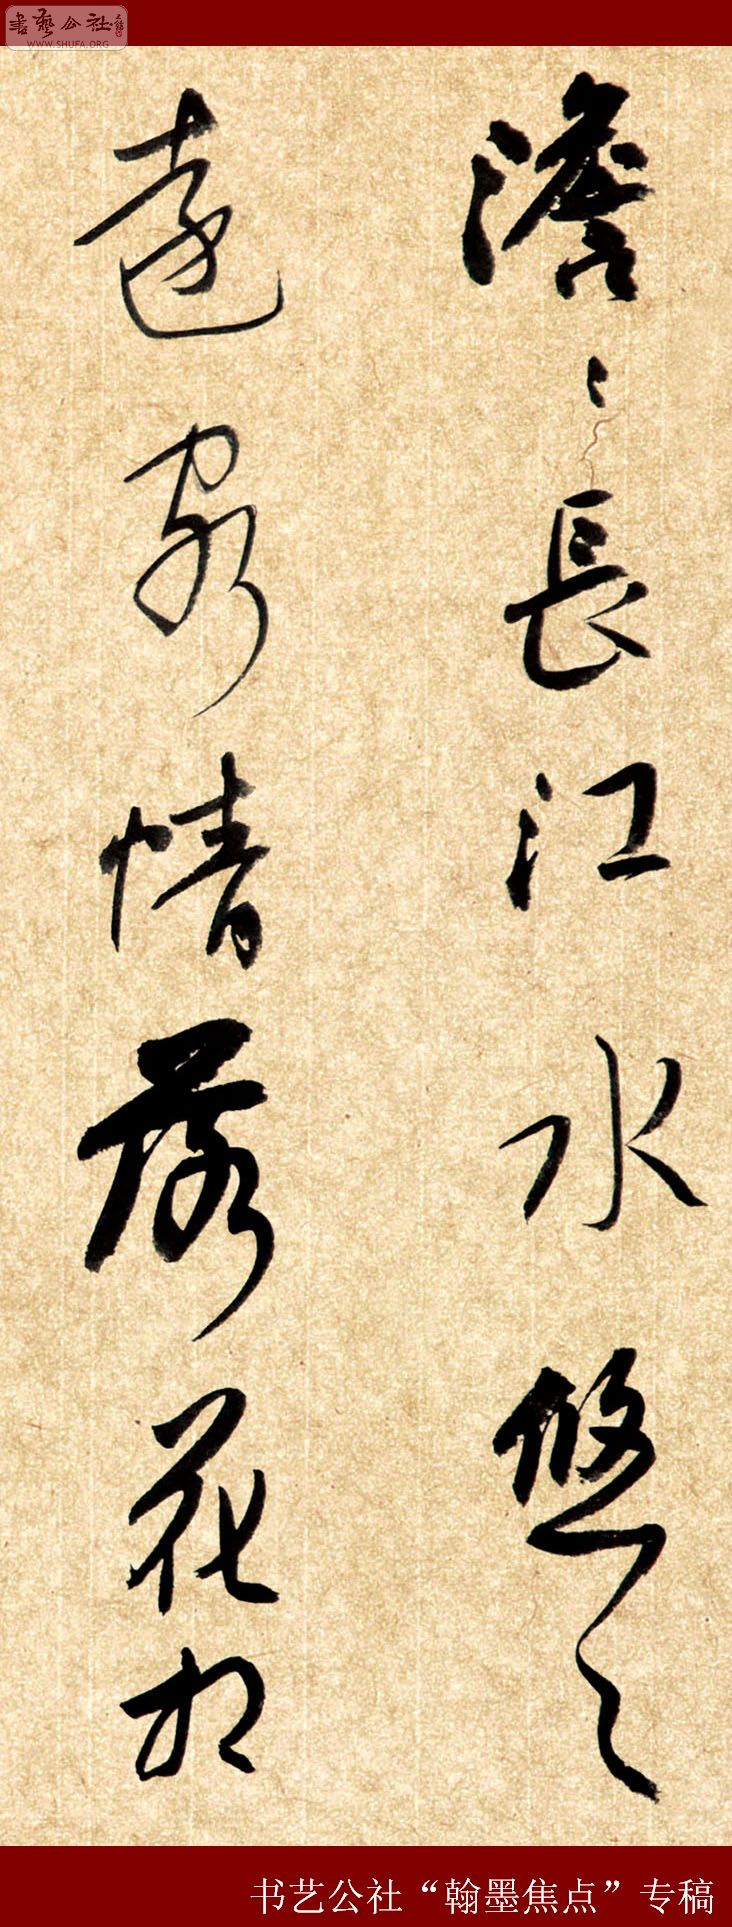 書藝公社
WWW.SHUFA.ORG
澹〻長江水悠〻
遠客情落花相
书艺公社“翰墨焦点”专稿